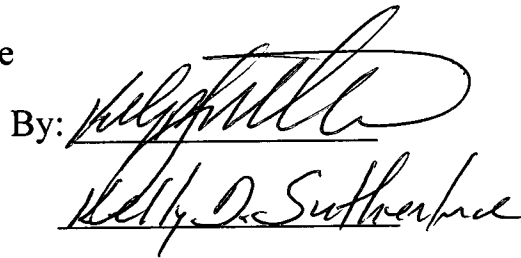 e
By:
Kelly D. Sutherland